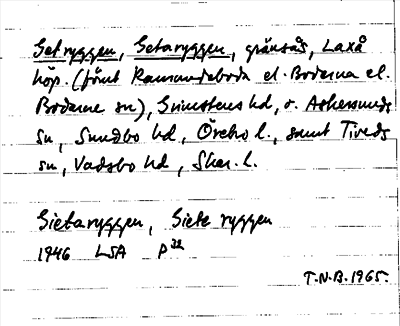 Getryggen, Getaryggen, gränsås, Laxå
köp. (förut Ramundeboda el. Bodarna el.
Bodarne sn), Grimstens hd, o. Askersunds
sn, Sundbo hd, Örebro l., samt Tiveds
sn, Vadsbo hd, Skar. l.
Gietaryggen, Giete ryggen
1946 LSA P²²
T.N.B. 1965.